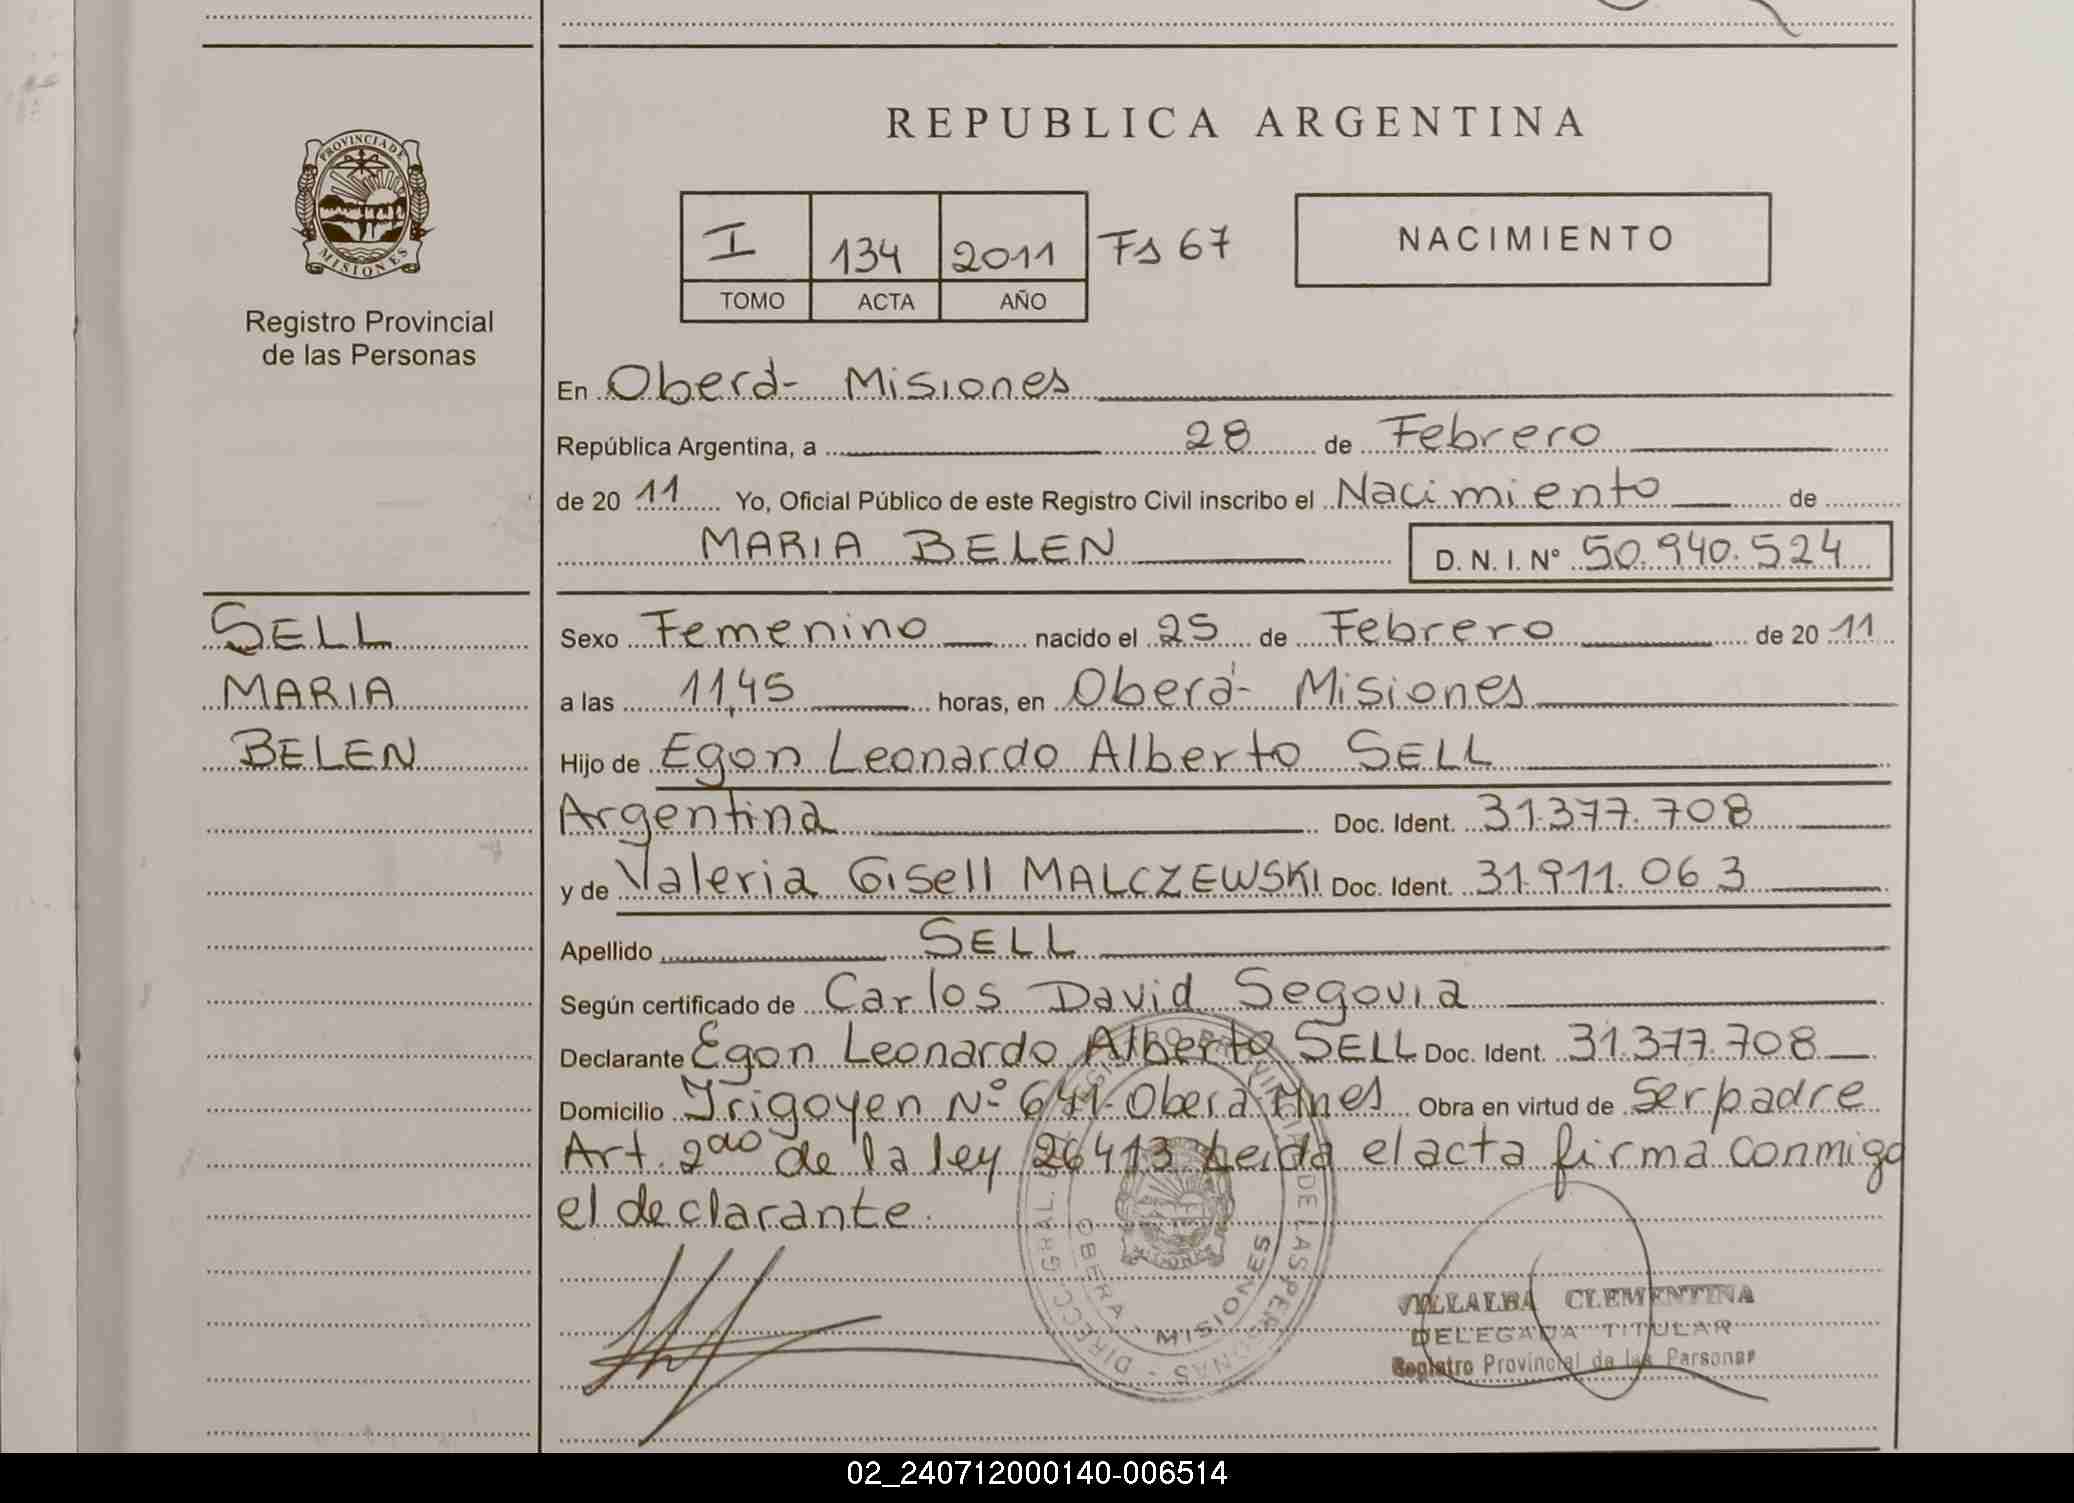 REPUBLICA ARGENTINA
PROVINCIA DE MISIONES
Registro Provincial
de las Personas
I 134 2011 Fs 67
TOMO ACTA AÑO
NACIMIENTO
En Oberá- Misiones
República Argentina, a 28 de Febrero
de 2011 Yo, Oficial Público de este Registro Civil inscribo el Nacimiento de
MARIA BELEN D. N. I. Nº 50.940.524
SELL
MARIA
BELEN
Sexo Femenino nacido el 25 de Febrero de 2011
a las 11,45 horas, en Oberá- Misiones
Hijo de Egon Leonardo Alberto SELL
Argentina Doc. Ident. 31.377.708
y de Valeria Gisell MALCZEWSKI Doc. Ident. 31.911.063
Apellido SELL
Según certificado de Carlos David Segovia
Declarante Egon Leonardo Alberto SELL Doc. Ident. 31.377.708
Domicilio Irigoyen Nº 641- Oberá Mnes Obra en virtud de ser padre
Art. 2do de la ley 26413 Leida el acta firma conmigo
el declarante.
OBERA - MISIONES
VILLALBA CLEMENTINA
DELEGADA TITULAR
Registro Provincial de las Personas
02_240712000140-006514